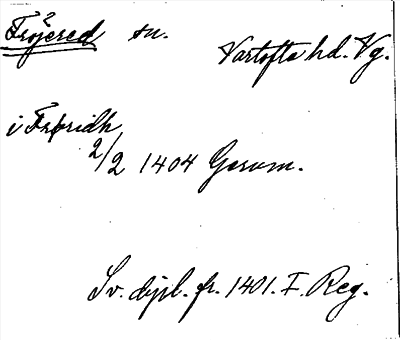 Fröjered sn.
Vartofta hd. Vg.
i Frøridh
2/2 1404 Gerum.
Sv. dipl. fr. 1401. I. Reg.